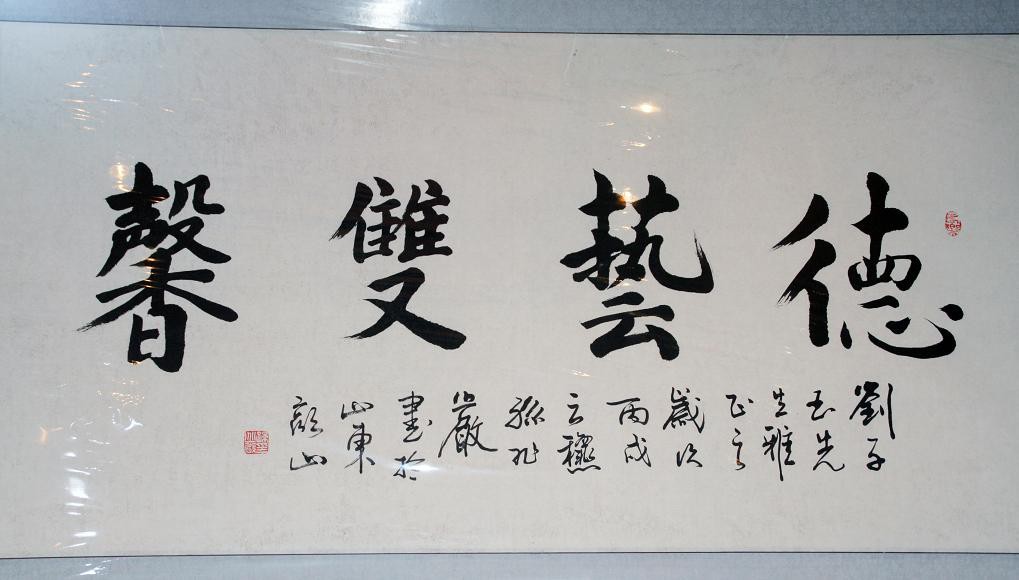 德藝雙馨
劉子
玉先
生雅
正之
歲次
丙戌
之穐
孫兆
嚴
書於
山東
顏山